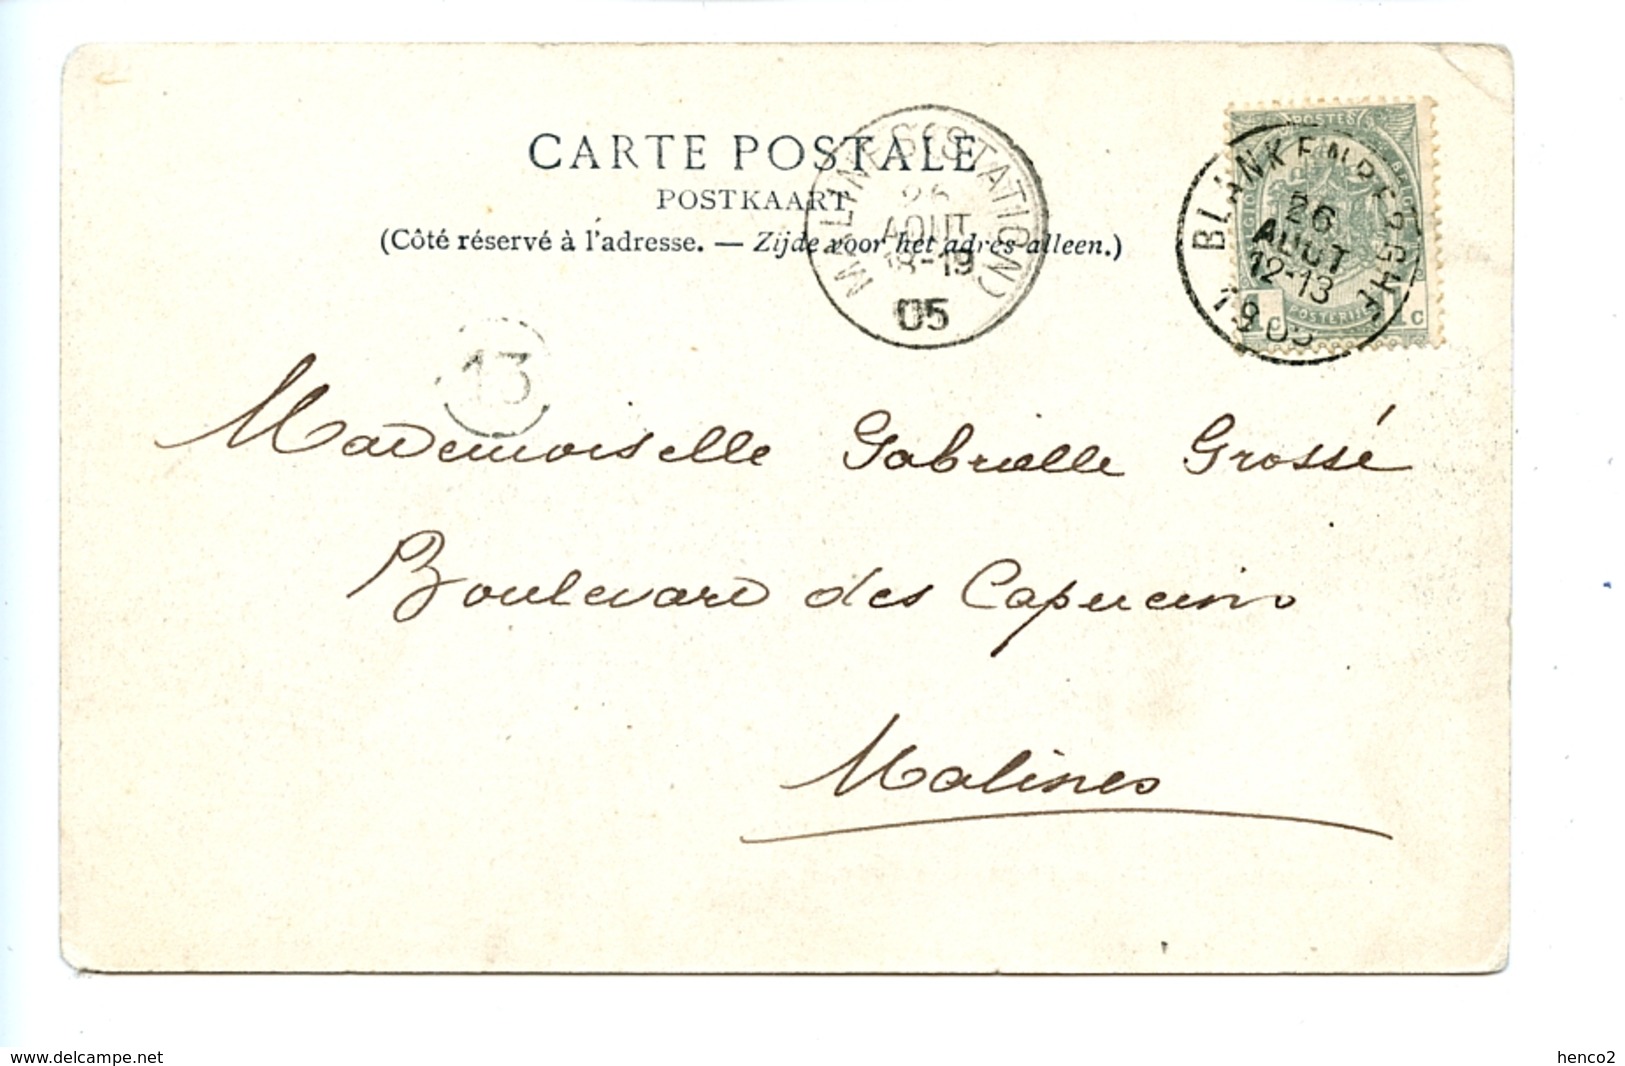 CARTE POSTALE
POSTKAART
(Côté réservé à l'adresse. — Zijde voor het adres alleen.)
MALINES (STATION)
26
AOUT
18-19
05
BLANKENBERGHE
26
AOUT
12-13
1905
POSTES
POSTERIJEN
1c 1c
13
Mademoiselle Gabrielle Grossé
Boulevard des Capucins
Malines
www.delcampe.net
henco2